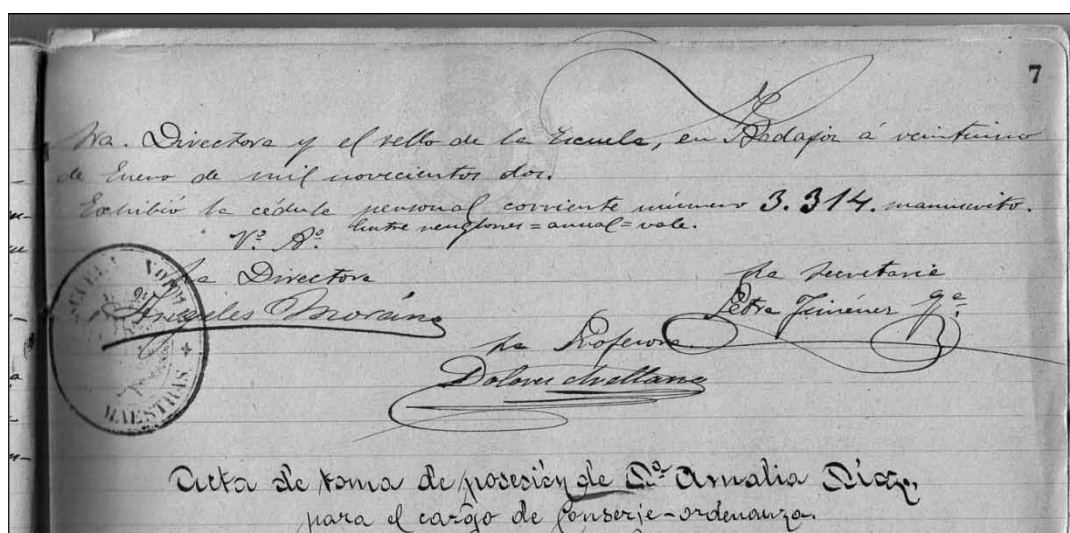 7
Sra. Directora y el sello de la Escuela, en Badajoz á veintiuno
de Enero de mil novecientos dos.
Exhibió la cédula personal corriente número 3.314. manuscrito.
Entre renglones = anual = vale.
Vº Bº
La Directora
La Secretaria
Angeles Morán
Petra Jiménez Gª.
La Profesora
Dolores Avellano
ESCUELA NORMAL
MAESTRAS
Acta de toma de posesión de Dª Amalia Díaz,
para el cargo de Conserje-ordenanza.